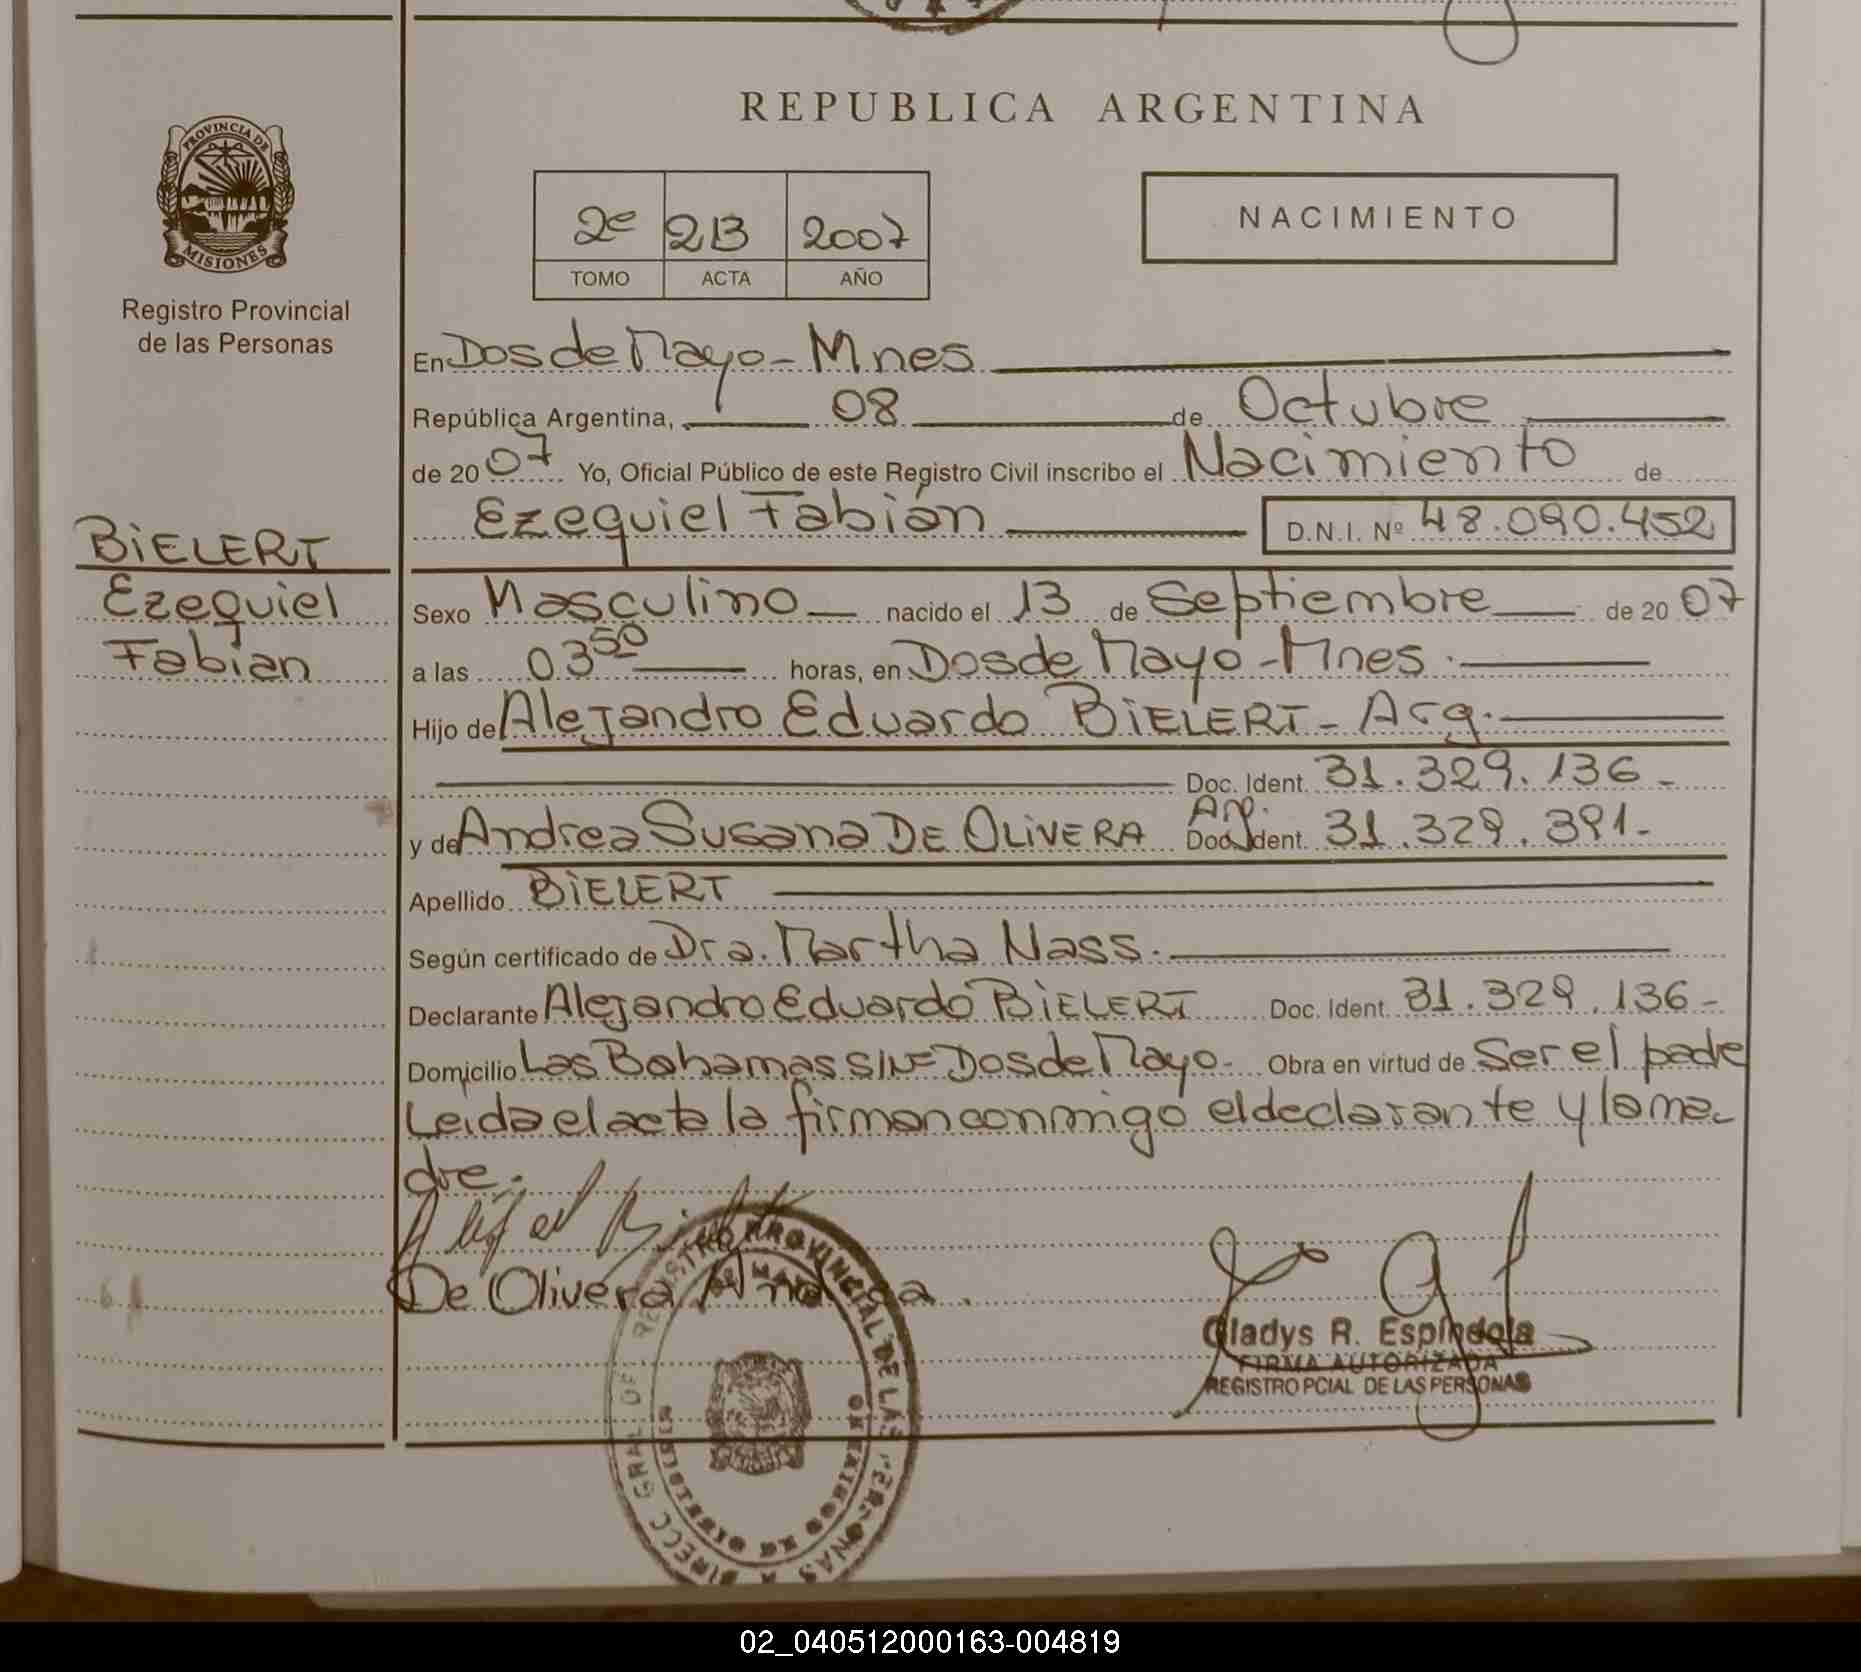 REPUBLICA ARGENTINA
PROVINCIA DE
MISIONES
Registro Provincial
de las Personas
2e 213 2007
TOMO ACTA AÑO
NACIMIENTO
En Dos de Mayo - Mnes
República Argentina, 08 de Octubre
de 2007 Yo, Oficial Público de este Registro Civil inscribo el Nacimiento de
Ezequiel Fabián D.N.I. Nº 48.090.452
BIELERT
Ezequiel
Fabian
Sexo Masculino nacido el 13 de Septiembre de 2007
a las 03 50 horas, en Dos de Mayo - Mnes.
Hijo de Alejandro Eduardo BIELERT - Arg.
Doc. Ident. 31.329.136 -
y de Andrea Susana DE OLIVERA Arg. Doc. Ident. 31.329.391 -
Apellido BIELERT
Según certificado de Dra. Martha Nass.
Declarante Alejandro Eduardo BIELERT Doc. Ident. 31.329.136 -
Domicilio Las Bahamas S/Nº Dos de Mayo - Obra en virtud de Ser el padre
Leida el acta la firman conmigo el declarante y la ma-
dre.
De Olivera Andrea.
Gladys R. Espíndola
FIRMA AUTORIZADA
REGISTRO PCIAL DE LAS PERSONAS
DIRECC GRAL DEL REGISTRO PROVINCIAL DE LAS PERSONAS
02_040512000163-004819